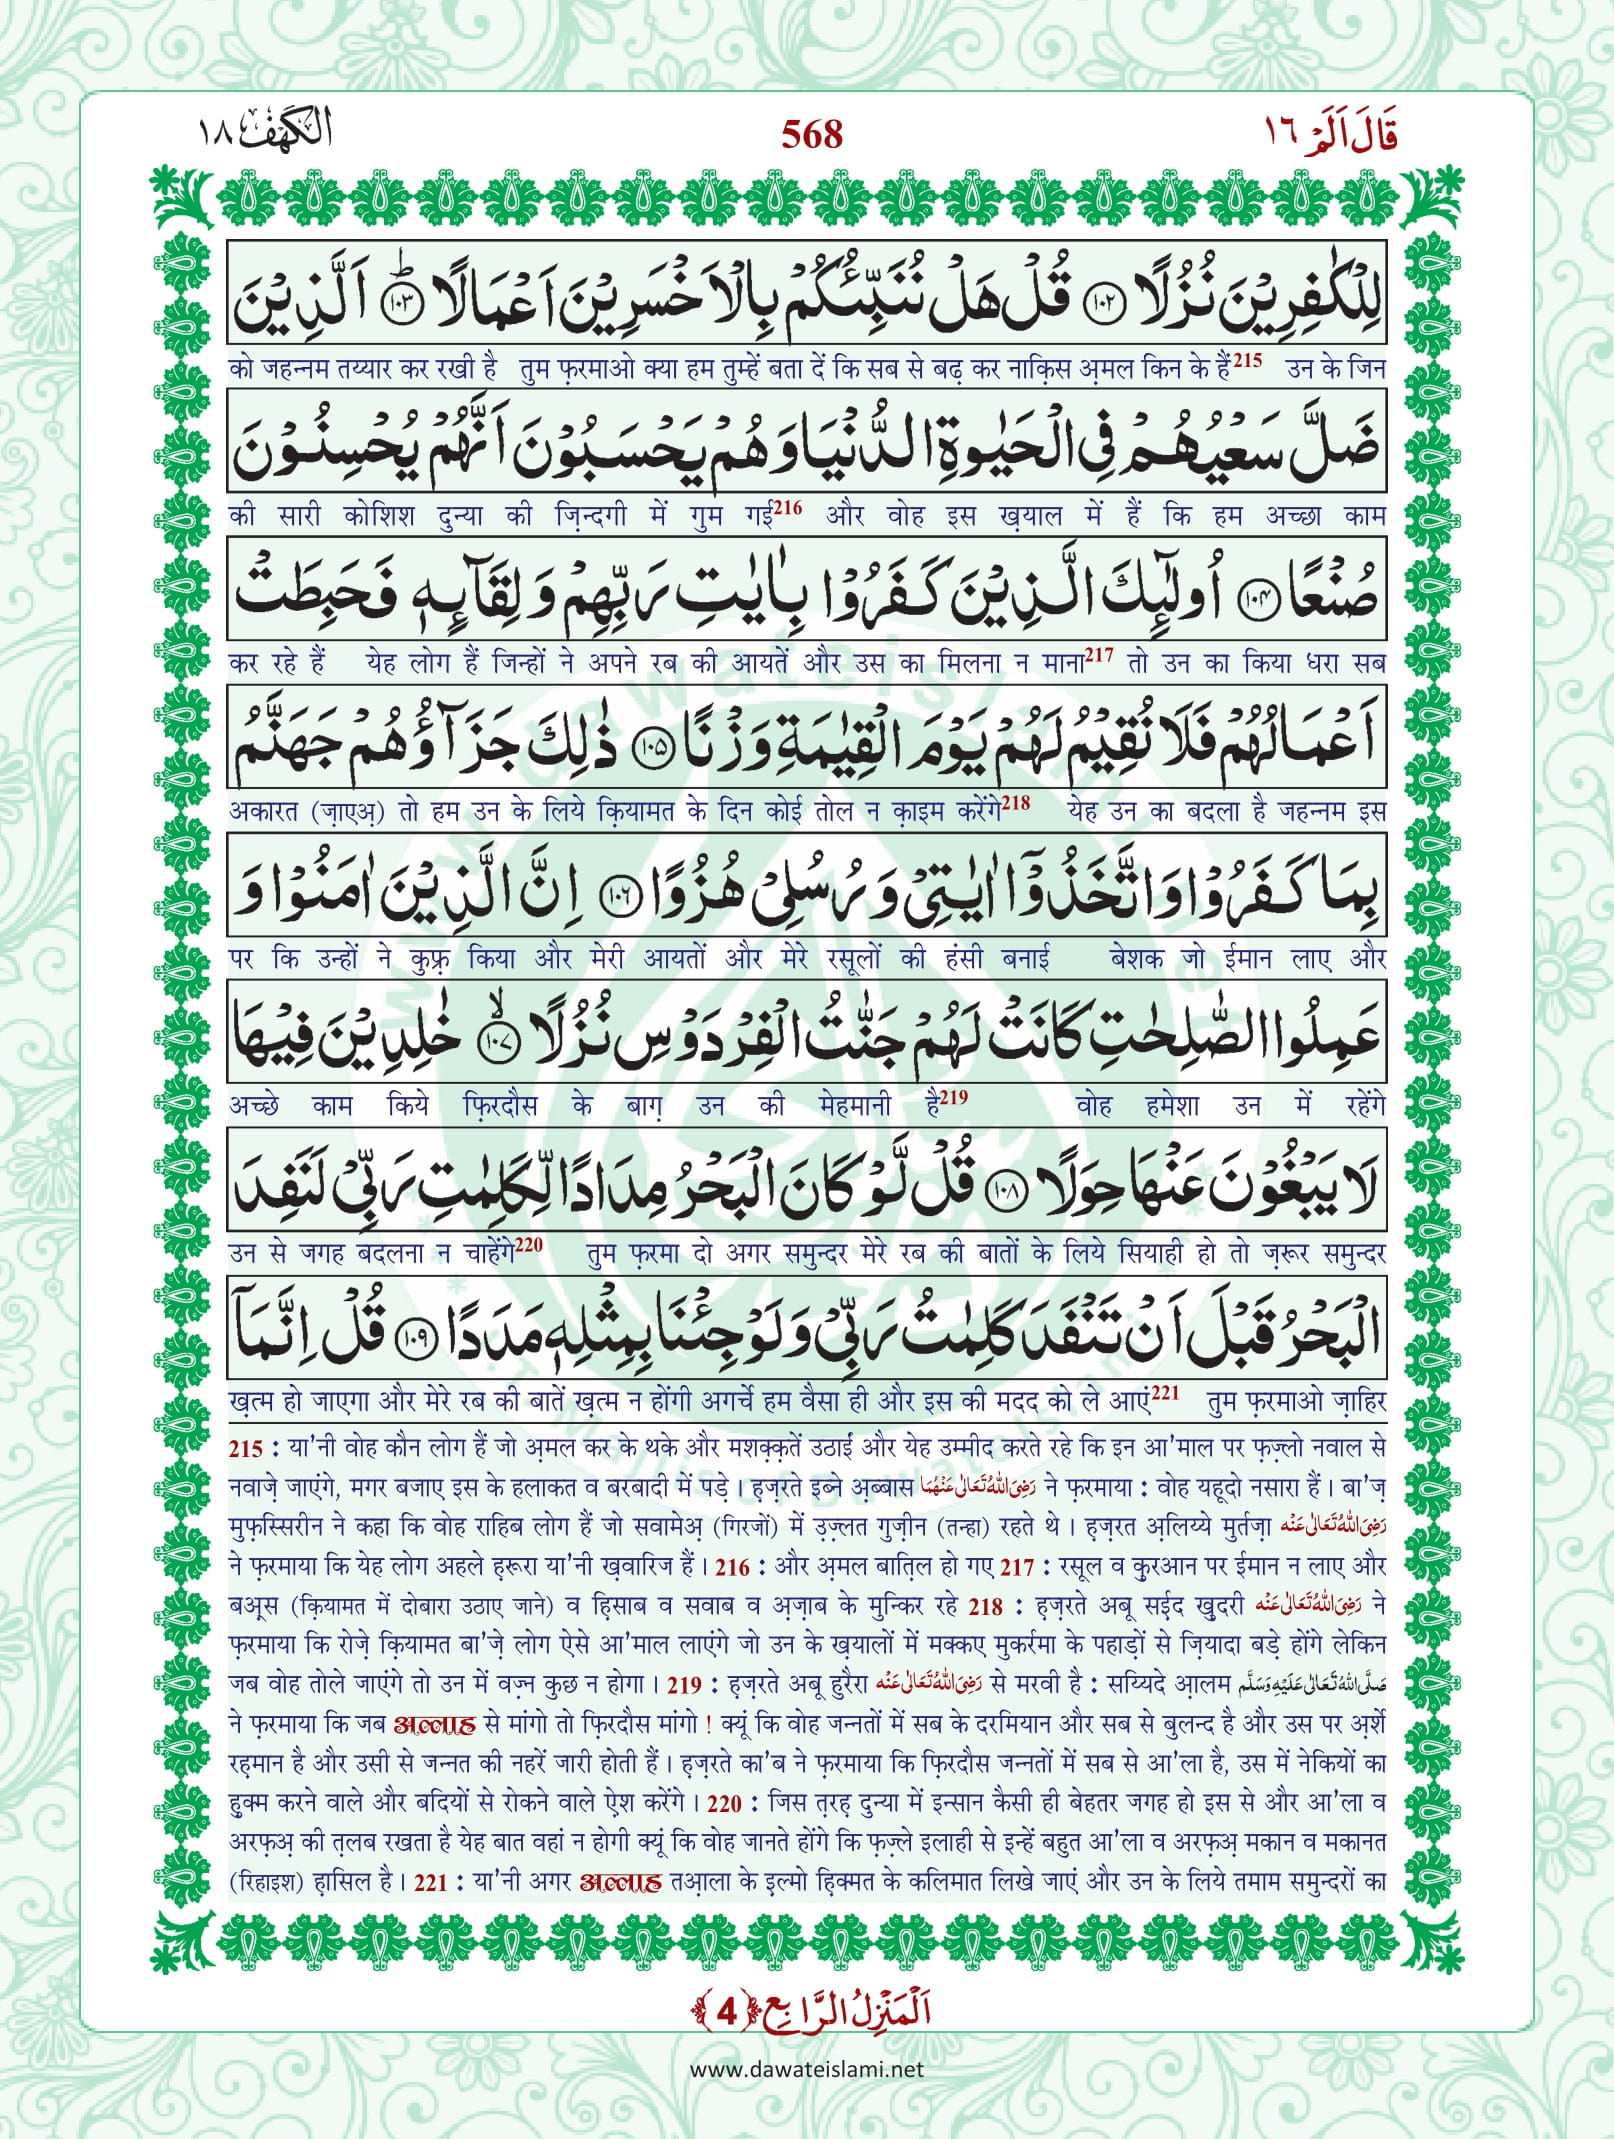 قَالَ اَلَمْ ١٦
568
الكَهْف ١٨
لِلْكٰفِرِيْنَ نُزُلًا ﴿١٠٢﴾ قُلْ هَلْ نُنَبِّئُكُمْ بِالْاَخْسَرِيْنَ اَعْمَالًا ﴿١٠٣﴾ؕ اَلَّذِيْنَ
को जहन्नम तय्यार कर रखी है तुम फ़रमाओ क्या हम तुम्हें बता दें कि सब से बढ़ कर नाक़िस अ़मल किन के हैं215 उन के जिन
ضَلَّ سَعْيُهُمْ فِى الْحَيٰوةِ الدُّنْيَا وَهُمْ يَحْسَبُوْنَ اَنَّهُمْ يُحْسِنُوْنَ
की सारी कोशिश दुन्या की ज़िन्दगी में गुम गई216 और वोह इस ख़याल में हैं कि हम अच्छा काम
صُنْعًا ﴿١٠٤﴾ اُولٰٓئِكَ الَّذِيْنَ كَفَرُوْا بِاٰيٰتِ رَبِّهِمْ وَلِقَآئِهٖ فَحَبِطَتْ
कर रहे हैं येह लोग हैं जिन्हों ने अपने रब की आयतें और उस का मिलना न माना217 तो उन का किया धरा सब
اَعْمَالُهُمْ فَلَا نُقِيْمُ لَهُمْ يَوْمَ الْقِيٰمَةِ وَزْنًا ﴿١٠٥﴾ ذٰلِكَ جَزَآؤُهُمْ جَهَنَّمُ
अकारत (ज़ाएअ़) तो हम उन के लिये क़ियामत के दिन कोई तोल न क़ाइम करेंगे218 येह उन का बदला है जहन्नम इस
بِمَا كَفَرُوْا وَاتَّخَذُوْۤا اٰيٰتِىْ وَرُسُلِىْ هُزُوًا ﴿١٠٦﴾ اِنَّ الَّذِيْنَ اٰمَنُوْا وَ
पर कि उन्हों ने कुफ़्र किया और मेरी आयतों और मेरे रसूलों की हंसी बनाई बेशक जो ईमान लाए और
عَمِلُوا الصّٰلِحٰتِ كَانَتْ لَهُمْ جَنّٰتُ الْفِرْدَوْسِ نُزُلًا ﴿١٠٧﴾ۙ خٰلِدِيْنَ فِيْهَا
अच्छे काम किये फ़िरदौस के बाग़ उन की मेहमानी है219 वोह हमेशा उन में रहेंगे
لَا يَبْغُوْنَ عَنْهَا حِوَلًا ﴿١٠٨﴾ قُلْ لَّوْ كَانَ الْبَحْرُ مِدَادًا لِّكَلِمٰتِ رَبِّىْ لَنَفِدَ
उन से जगह बदलना न चाहेंगे220 तुम फ़रमा दो अगर समुन्दर मेरे रब की बातों के लिये सियाही हो तो ज़रूर समुन्दर
الْبَحْرُ قَبْلَ اَنْ تَنْفَدَ كَلِمٰتُ رَبِّىْ وَلَوْ جِئْنَا بِمِثْلِهٖ مَدَدًا ﴿١٠٩﴾ قُلْ اِنَّمَاۤ
ख़त्म हो जाएगा और मेरे रब की बातें ख़त्म न होंगी अगर्चे हम वैसा ही और इस की मदद को ले आएं221 तुम फ़रमाओ ज़ाहिर
215 : या'नी वोह कौन लोग हैं जो अ़मल कर के थके और मशक़्क़तें उठाईं और येह उम्मीद करते रहे कि इन आ'माल पर फ़ज़्लो नवाल से
नवाज़े जाएंगे, मगर बजाए इस के हलाकत व बरबादी में पड़े। हज़रते इब्ने अ़ब्बास رَضِىَ اللهُ تَعَالٰى عَنْهُمَا ने फ़रमाया : वोह यहूदो नसारा हैं। बा'ज़
मुफ़स्सिरीन ने कहा कि वोह राहिब लोग हैं जो सवामेअ़ (गिरजों) में उ़ज़्लत गुज़ीन (तन्हा) रहते थे। हज़रत अ़लिय्ये मुर्तज़ा رَضِىَ اللهُ تَعَالٰى عَنْه
ने फ़रमाया कि येह लोग अहले हरूरा या'नी ख़वारिज हैं। 216 : और अ़मल बातिल हो गए 217 : रसूल व कुरआन पर ईमान न लाए और
बअ़्स (क़ियामत में दोबारा उठाए जाने) व हिसाब व सवाब व अ़ज़ाब के मुन्किर रहे 218 : हज़रते अबू सईद खुदरी رَضِىَ اللهُ تَعَالٰى عَنْه ने
फ़रमाया कि रोज़े क़ियामत बा'ज़े लोग ऐसे आ'माल लाएंगे जो उन के ख़यालों में मक्कए मुकर्रमा के पहाड़ों से ज़ियादा बड़े होंगे लेकिन
जब वोह तोले जाएंगे तो उन में वज़्न कुछ न होगा। 219 : हज़रते अबू हुरैरा رَضِىَ اللهُ تَعَالٰى عَنْه से मरवी है : सय्यिदे आ़लम صَلَّى اللهُ تَعَالٰى عَلَيْهِ وَسَلَّم
ने फ़रमाया कि जब अल्लाह से मांगो तो फ़िरदौस मांगो ! क्यूं कि वोह जन्नतों में सब के दरमियान और सब से बुलन्द है और उस पर अ़र्शे
रहमान है और उसी से जन्नत की नहरें जारी होती हैं। हज़रते का'ब ने फ़रमाया कि फ़िरदौस जन्नतों में सब से आ'ला है, उस में नेकियों का
हुक्म करने वाले और बदियों से रोकने वाले ऐश करेंगे। 220 : जिस तरह दुन्या में इन्सान कैसी ही बेहतर जगह हो इस से और आ'ला व
अरफ़अ़ की तलब रखता है येह बात वहां न होगी क्यूं कि वोह जानते होंगे कि फ़ज़्ले इलाही से इन्हें बहुत आ'ला व अरफ़अ़ मकान व मकानत
(रिहाइश) हासिल है। 221 : या'नी अगर अल्लाह तआ़ला के इल्मो हिक्मत के कलिमात लिखे जाएं और उन के लिये तमाम समुन्दरों का
اَلْمَنْزِلُ الرَّابِع ﴿4﴾
www.dawateislami.net